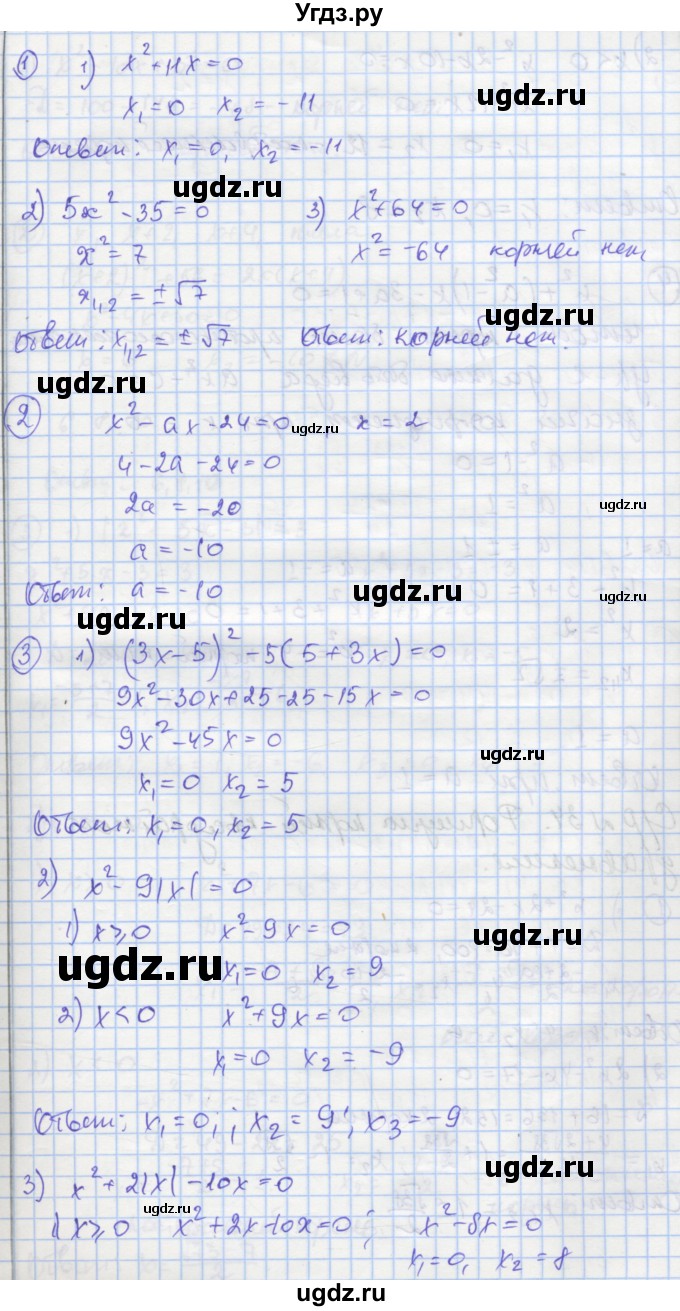 Угдз.ру
① 1) x² + 11x = 0
x₁ = 0 x₂ = -11
ugdz.ru
Ответ: x₁ = 0, x₂ = -11
ugdz.ru
ugdz.ru
2) 5x² - 35 = 0 3) x² + 64 = 0
x² = 7 x² = -64 корней нет
x₁,₂ = ±√7
ugdz.ru
Ответ: x₁,₂ = ±√7 Ответ: корней нет.
ugdz.ru
② x² - ax - 24 = 0 ugdz.ru x = 2
4 - 2a - 24 = 0
2a = -20
ugdz.ru
a = -10
Ответ: a = -10
ugdz.ru
ugdz.ru
ugdz.ru
③ 1) (3x - 5)² - 5(5 + 3x) = 0
9x² - 30x + 25 - 25 - 15x = 0
9x² - 45x = 0
ugdz.ru
x₁ = 0 x₂ = 5
Ответ: x₁ = 0, x₂ = 5
2) x² - 9|x| = 0
1) x ⩾ 0 x² - 9x = 0
ugdz.ru
ugdz.ru
x₁ = 0 x₂ = 9
2) x < 0 x² + 9x = 0
x₁ = 0 x₂ = -9
ugdz.ru
Ответ: x₁ = 0, ; x₂ = 9; x₃ = -9
ugdz.ru
3) x² + 2|x| - 10x = 0
1) x ⩾ 0 x² + 2x - 10x = 0; x² - 8x = 0
ugdz.ru
x₁ = 0, x₂ = 8
ugdz.ru